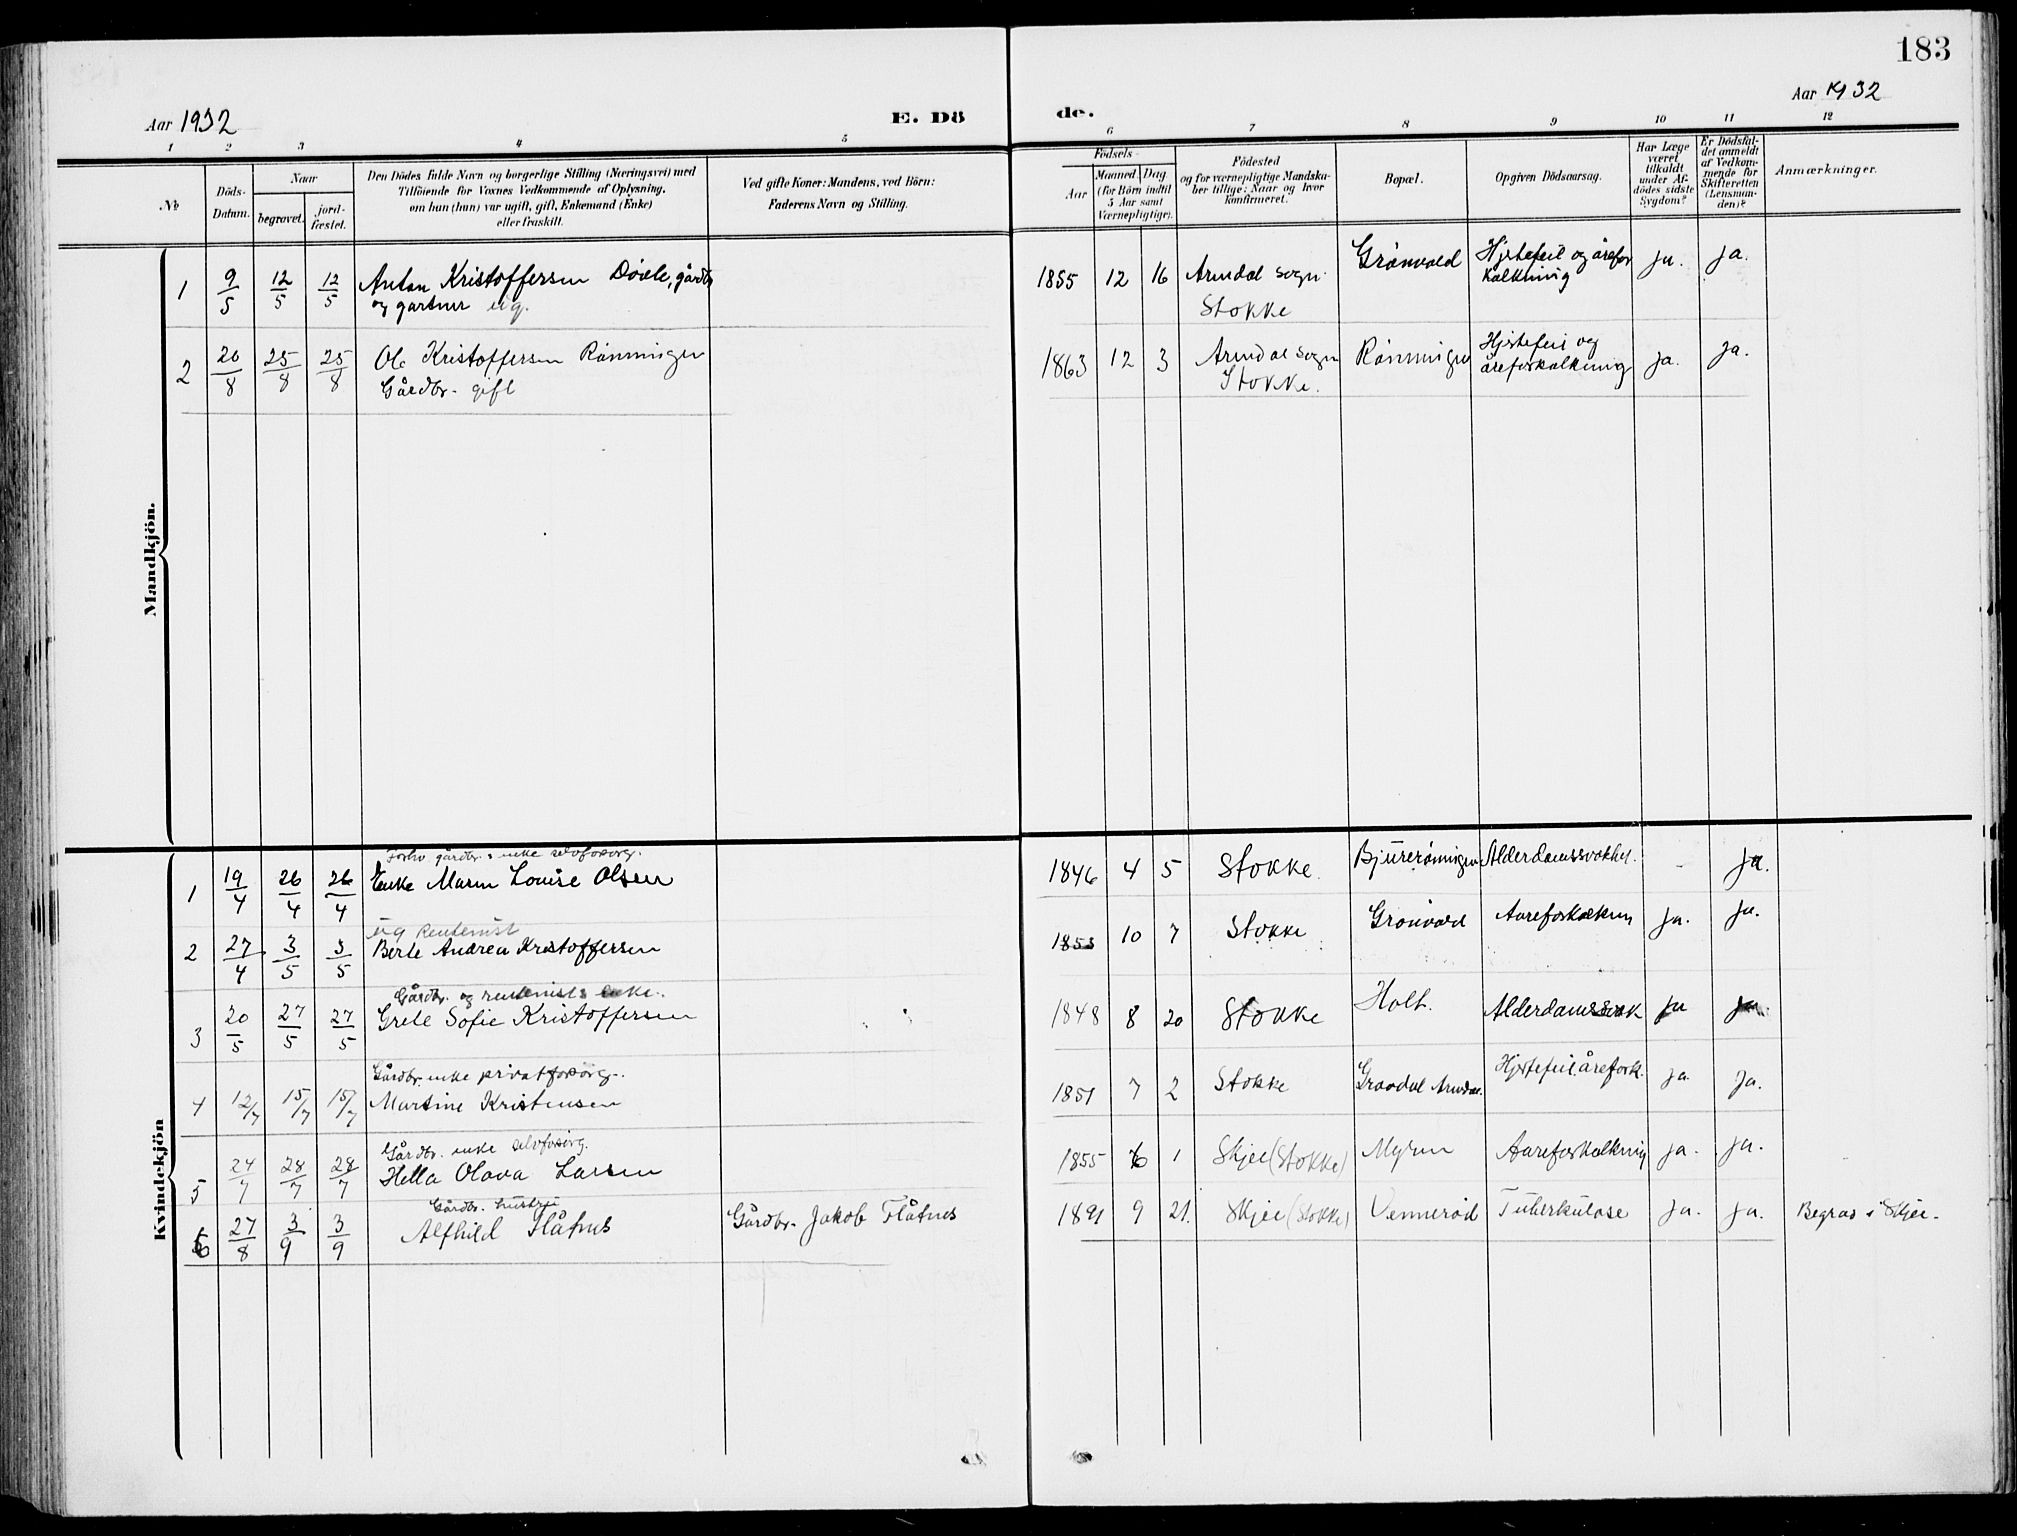 183
Aar 1932
E. Dö
de.
Aar 1932
1 2 3 4 5
6 7 8 9 10 11 12
№
Döds-Datum.
Naar
begravet.
jord-fæstet.
Den Dödes fulde Navn og borgerlige Stilling (Næringsvei) med
Tilföiende for Voxnes Vedkommende af Oplysning,
om han (hun) var ugift, gift, Enkemand (Enke)
eller fraskilt.
Ved gifte Koner: Mandens, ved Börn:
Faderens Navn og Stilling.
Födsels-
Aar
Maaned. Dag
(for Börn indtil
5 Aar samt
Værnepligtige).
Födested
og for værnepligtige Mandska-
ber tillige: Naar og hvor
konfirmeret.
Bopæl.
Opgiven Dödsaarsag.
Har Læge
været
tilkaldt
under Af-
dödes sidste
Sygdom?
Er Dödsfal-
det anmeldt
af Vedkom-
mende for
Skifteretten
(Lensman-
den)?
Anmærkninger.
Mandkjön.
1 9/5 12/5 12/5 Anton Kristoffersen gårdbr
og gartner ug.
1855 12 16 Arendal sogn Stokke Grönvold Hjertefeil og årefor
kalkning ja. ja.
2 20/8 25/8 25/8 Ole Kristoffersen Rønningen
Gårdbr. gift
1863 12 3 Arendal sogn Stokke. Rønningen Hjertefeil og
åreforkalkning ja. ja.
Kvindekjön
Forhv gårdbr.s enke selvforsørg.
1 19/4 26/4 26/4 Enke Maren Louise Olsen
1846 4 5 Stokke. Bjurerønningen Alderdomssvakhet. - ja.
ug Rentenist
2 27/4 3/5 3/5 Berte Andrea Kristoffersen
1853 10 7 Stokke Grönvold Aareforkalkning ja. ja.
Gårdbr. og rentenists enke.
3 20/5 27/5 27/5 Grete Sofie Kristoffersen
1848 8 20 Stokke Holt. Alderdomssvak ja ja
Gårdbr. enke privatforsörg.
4 12/7 15/7 15/7 Martine Kristensen
1851 7 2 Stokke Hjertefeil årefork. ja ja.
Gårdbr. enke selvforsörg.
5 24/7 28/7 28/7 Hella Olava Larsen
1855 6 1 Skjee (Stokke) Myren Aareforkalkning ja. ja.
Gårdbr. hustru
6 27/8 3/9 3/9 Alfhild Flåtnes Gårdbr. Jakob Flåtnes
1891 9 21. Skjee (Stokke) Vennerød Tuberkulose ja. ja. Begrav i Skjee.